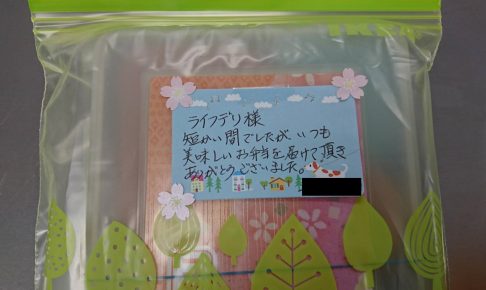 ライフデリ様
短かい間でしたが、いつも
美味しいお弁当を届けて頂き
ありがとうございました。